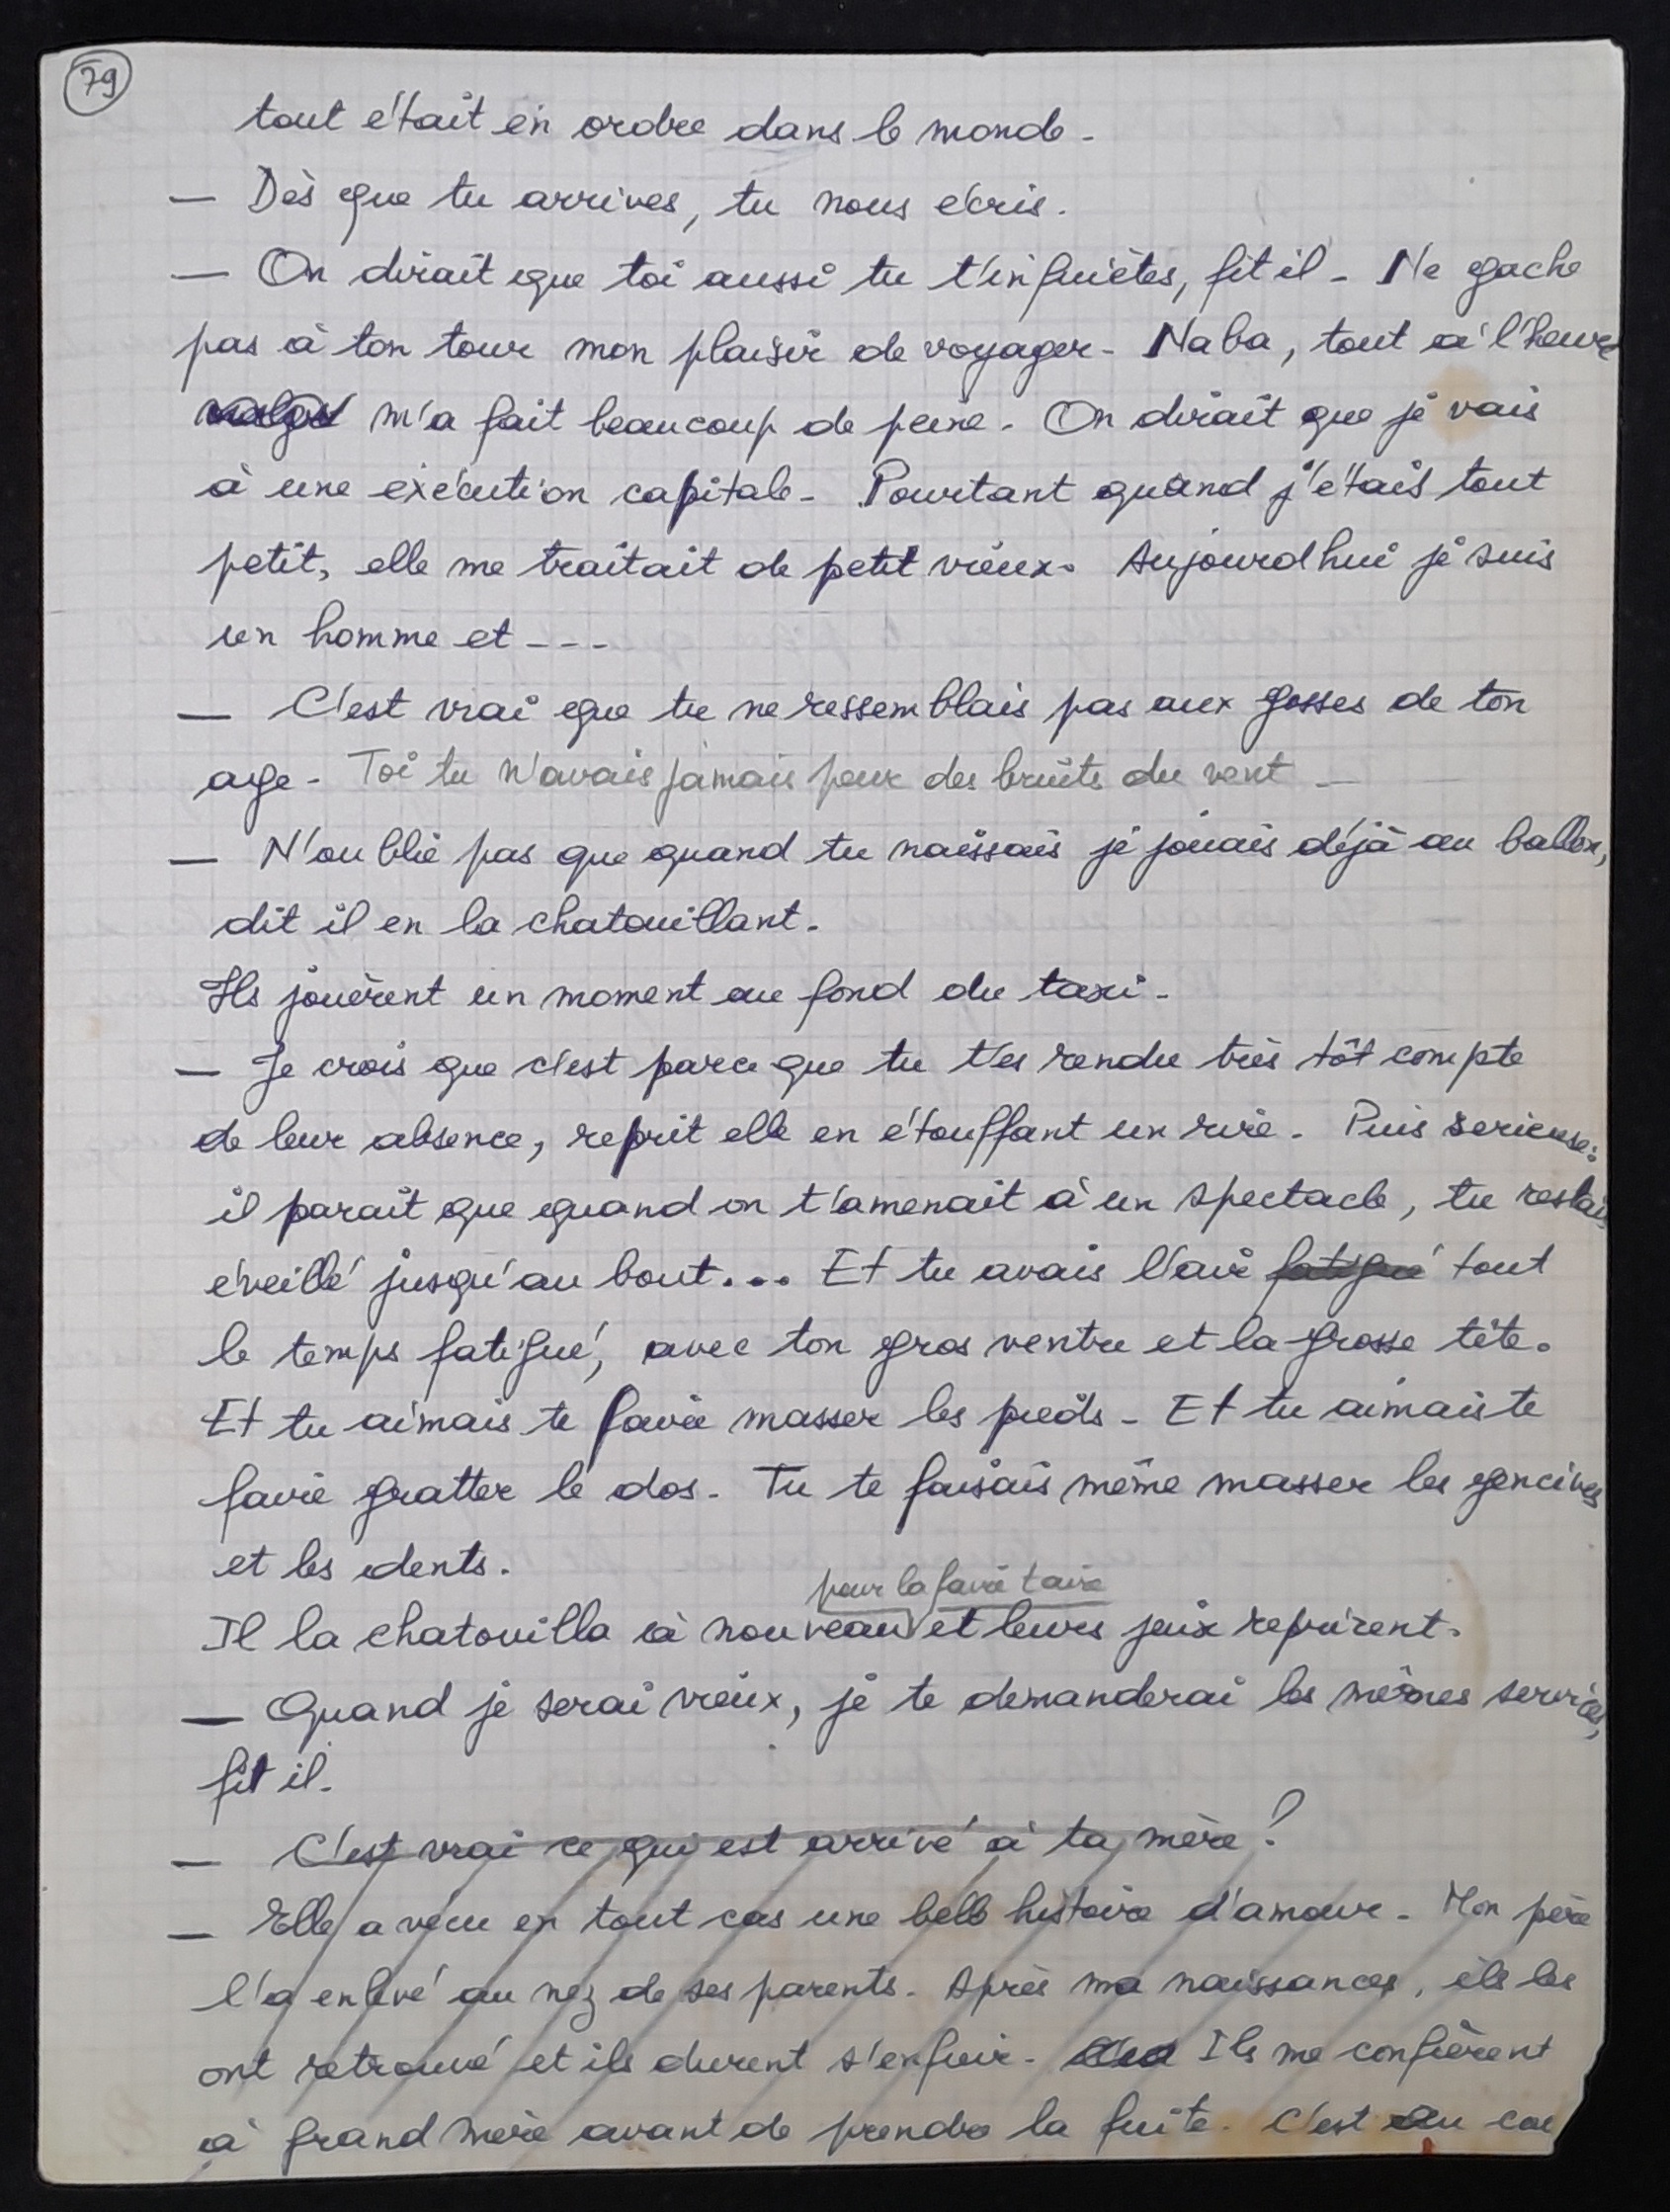 79
tout était en ordre dans le monde.
— Dès que tu arrives, tu nous écris.
— On dirait que toi aussi tu t'inquiètes, fit il. Ne gache
pas à ton tour mon plaisir de voyager. Naba, tout à l'heure
m'a fait beaucoup de peine. On dirait que je vais
à une exécution capitale. Pourtant quand j'étais tout
petit, elle me traitait de petit vieux. Aujourd'hui je suis
un homme et ---
— C'est vrai que tu ne ressemblais pas aux gosses de ton
age. Toi tu n'avais jamais peur des bruits du vent —
— N'oublie pas que quand tu naissais je jouais déjà au ballon,
dit il en la chatouillant.
Ils jouèrent un moment au fond du taxi.
— Je crois que c'est parce que tu t'es rendu très tôt compte
de leur absence, reprit elle en étouffant un rire. Puis serieuse:
il parait que quand on t'amenait à un spectacle, tu restais
éveillé jusqu'au bout... Et tu avais l'air fatigué tout
le temps fatigué, avec ton gros ventre et ta grosse tête.
Et tu aimais te faire masser les pieds. Et tu aimais te
faire gratter le dos. Tu te faisais même masser les gencives
et les dents.
pour la faire taire
Il la chatouilla à nouveau et leurs jeux reprirent.
— Quand je serai vieux, je te demanderai les mêmes services,
fit il.
— C'est vrai ce qui est arrivé à ta mère?
— Elle a vécu en tout cas une belle histoire d'amour. Mon père
l'a enlevé au nez de ses parents. Après ma naissance, ils les
ont retrouvé et ils durent s'enfuir. Ils me confièrent
à grand mère avant de prendre la fuite. C'est au